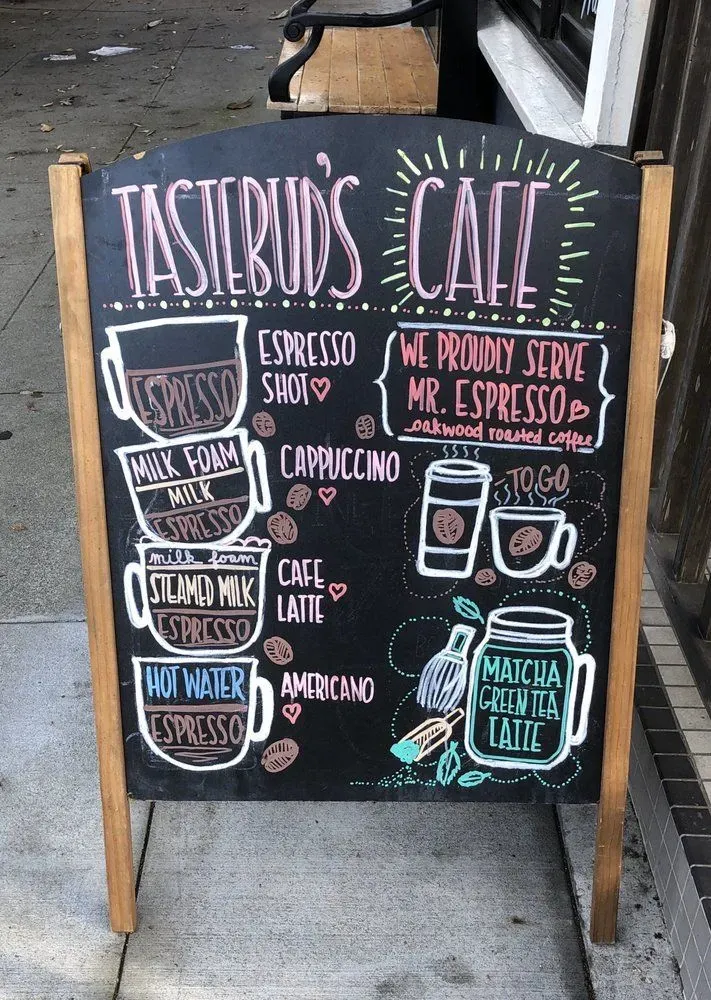 TASTEBUD'S CAFE
ESPRESSO
ESPRESSO
SHOT
MILK FOAM
MILK
ESPRESSO
CAPPUCCINO
milk foam
STEAMED MILK
ESPRESSO
CAFE
LATTE
HOT WATER
ESPRESSO
AMERICANO
WE PROUDLY SERVE
MR. ESPRESSO
oakwood roasted coffee
TO GO
MATCHA
GREEN TEA
LATTE